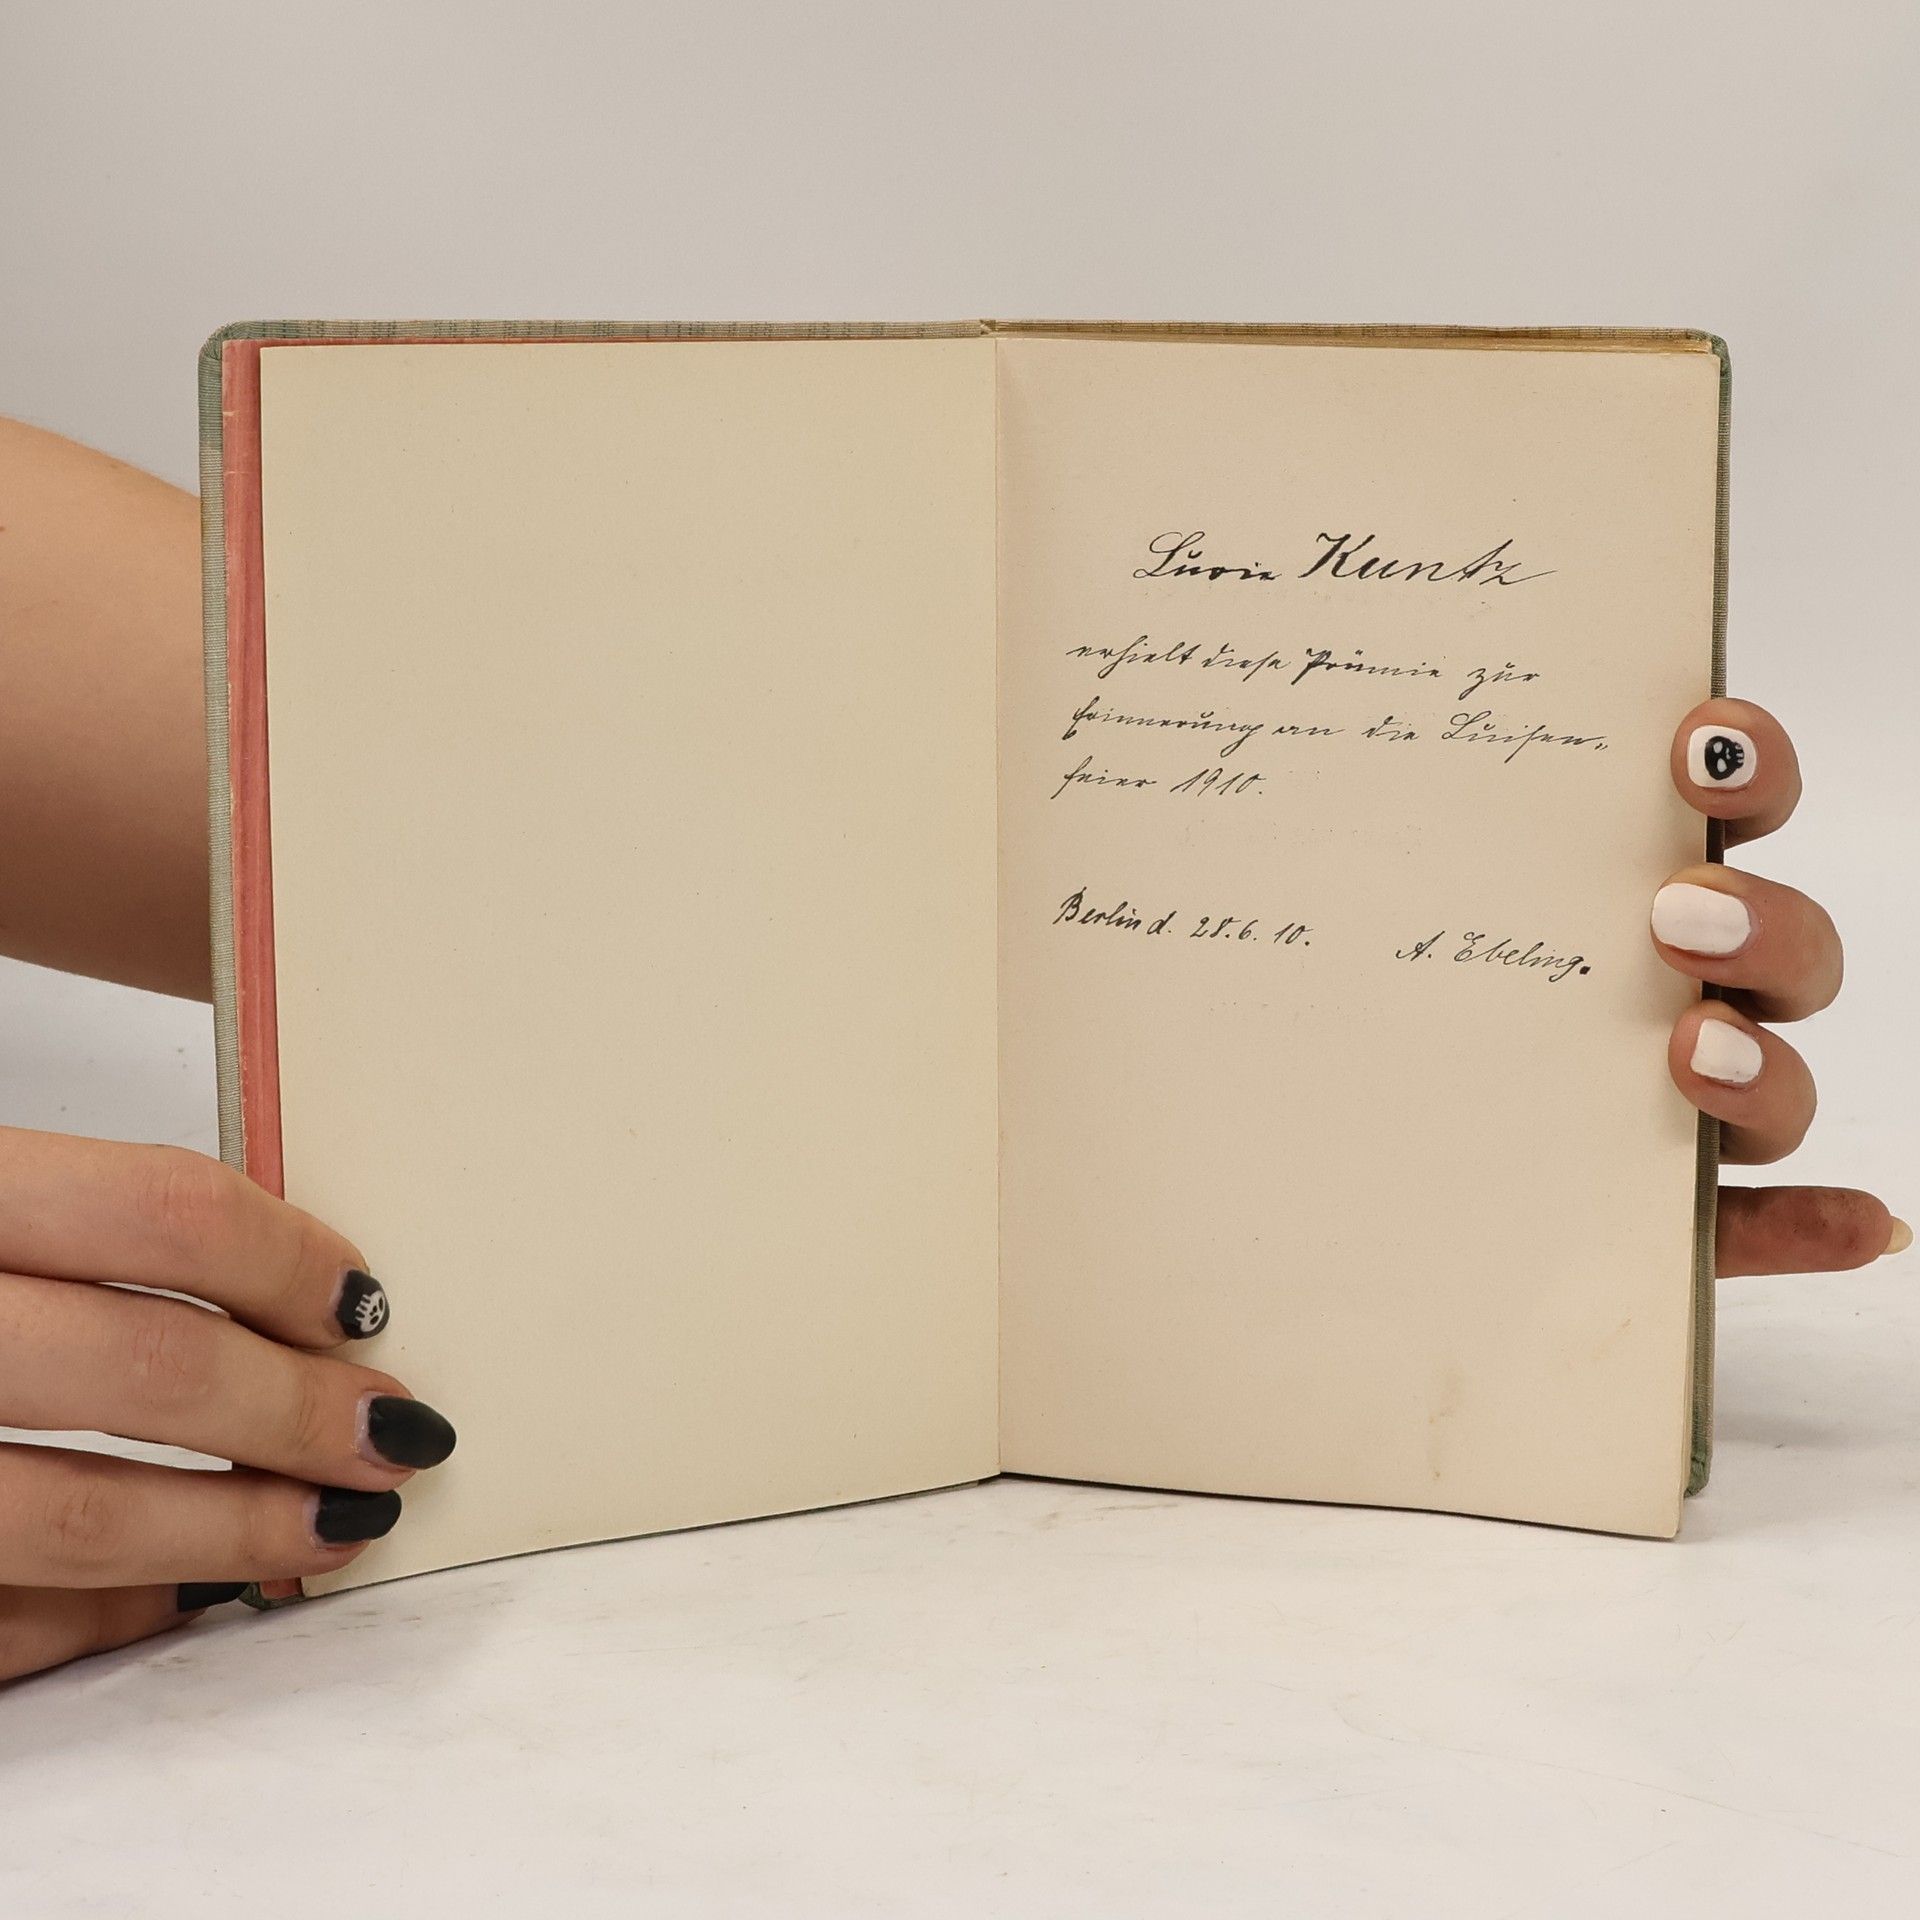 Lucie Kuntz
erhielt diese Prämie zur
Erinnerung an die Luisen„
feier 1910.
Berlin d. 28.6.10.
A. Ebeling.